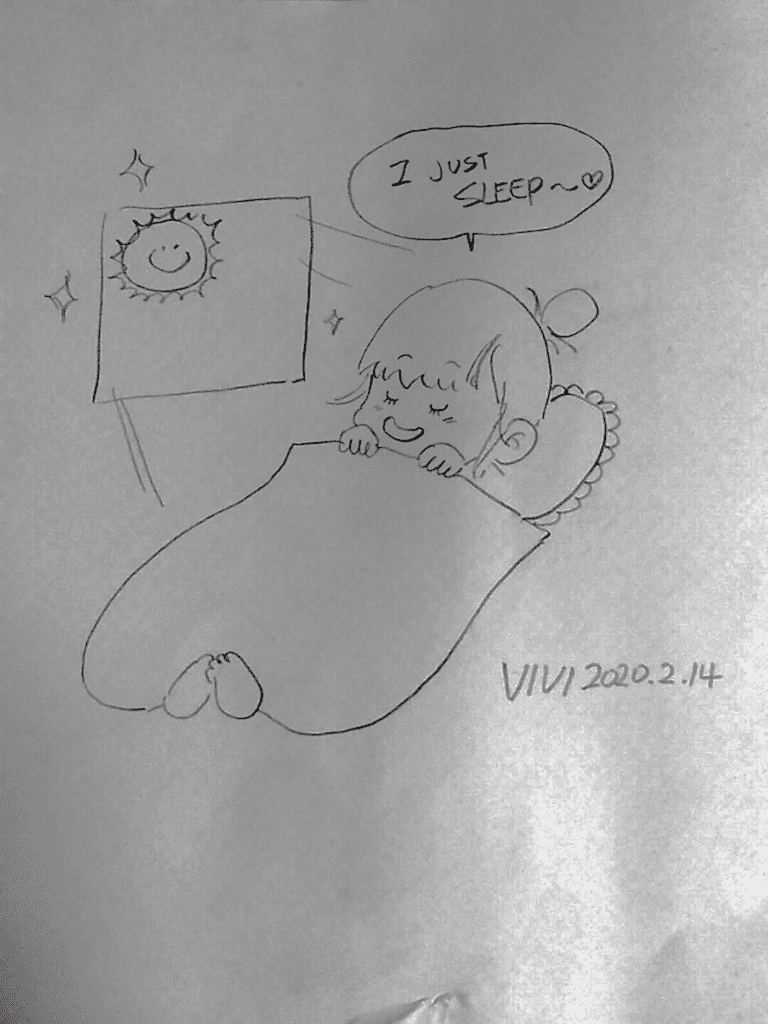 I JUST
SLEEP~♡
VIVI 2020.2.14